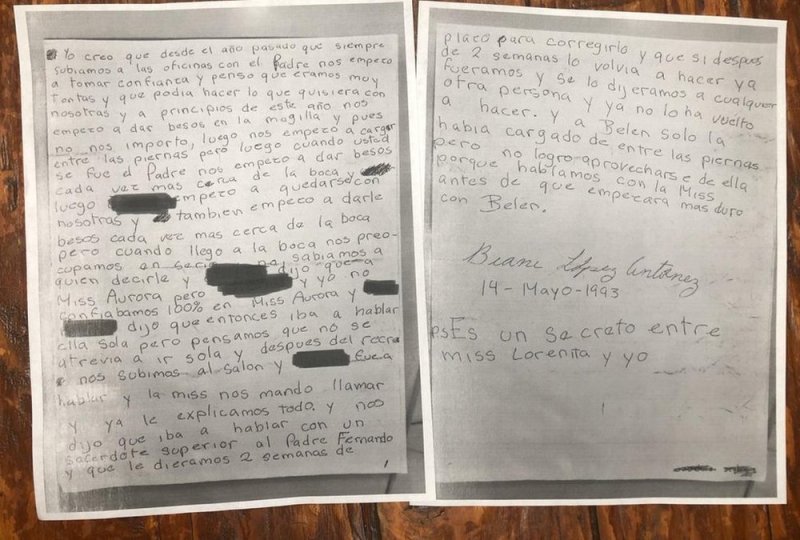 Yo creo que desde el año pasado que siempre
subiamos a las oficinas con el Padre nos empezo
a tomar confianza y penso que eramos muy
tontas y que podia hacer lo que quisiera con
nosotras y a principios de este año nos
empezo a dar besos en la megilla y pues
no nos importo, luego nos empezo a cargar
entre las piernas pero luego cuando usted
se fue el Padre nos empezo a dar besos
cada vez mas cerca de la boca y
luego empezo a quedarse con
nosotras y tambien empezo a darle
besos cada vez mas cerca de la boca
pero cuando llego a la boca nos preo-
cupamos en serio no sabiamos a
quien decirle y dijo que a
Miss Aurora pero y yo no
confiabamos 100% en Miss Aurora y
dijo que entonces iba a hablar
ella sola pero pensamos que no se
atrevia a ir sola y despues del recreo
nos subimos al salon y fue a
hablar y la miss nos mando llamar
y ya le explicamos todo. y nos
dijo que iba a hablar con un
sacerdote superior al Padre Fernando
y que le dieramos 2 semanas de
1
plazo para corregirlo y que si despues
de 2 semanas lo volvia a hacer ya
fueramos y se lo dijeramos a cualquier
otra persona y ya no lo ha vuelto
a hacer. y a Belen solo la
habia cargado de entre las piernas
pero no logro aprovecharse de ella
porque hablamos con la Miss
antes de que empezara mas duro
con Belen.
Biani López Antúnez
14-Mayo-1993
psEs un secreto entre
miss Lorenita y yo